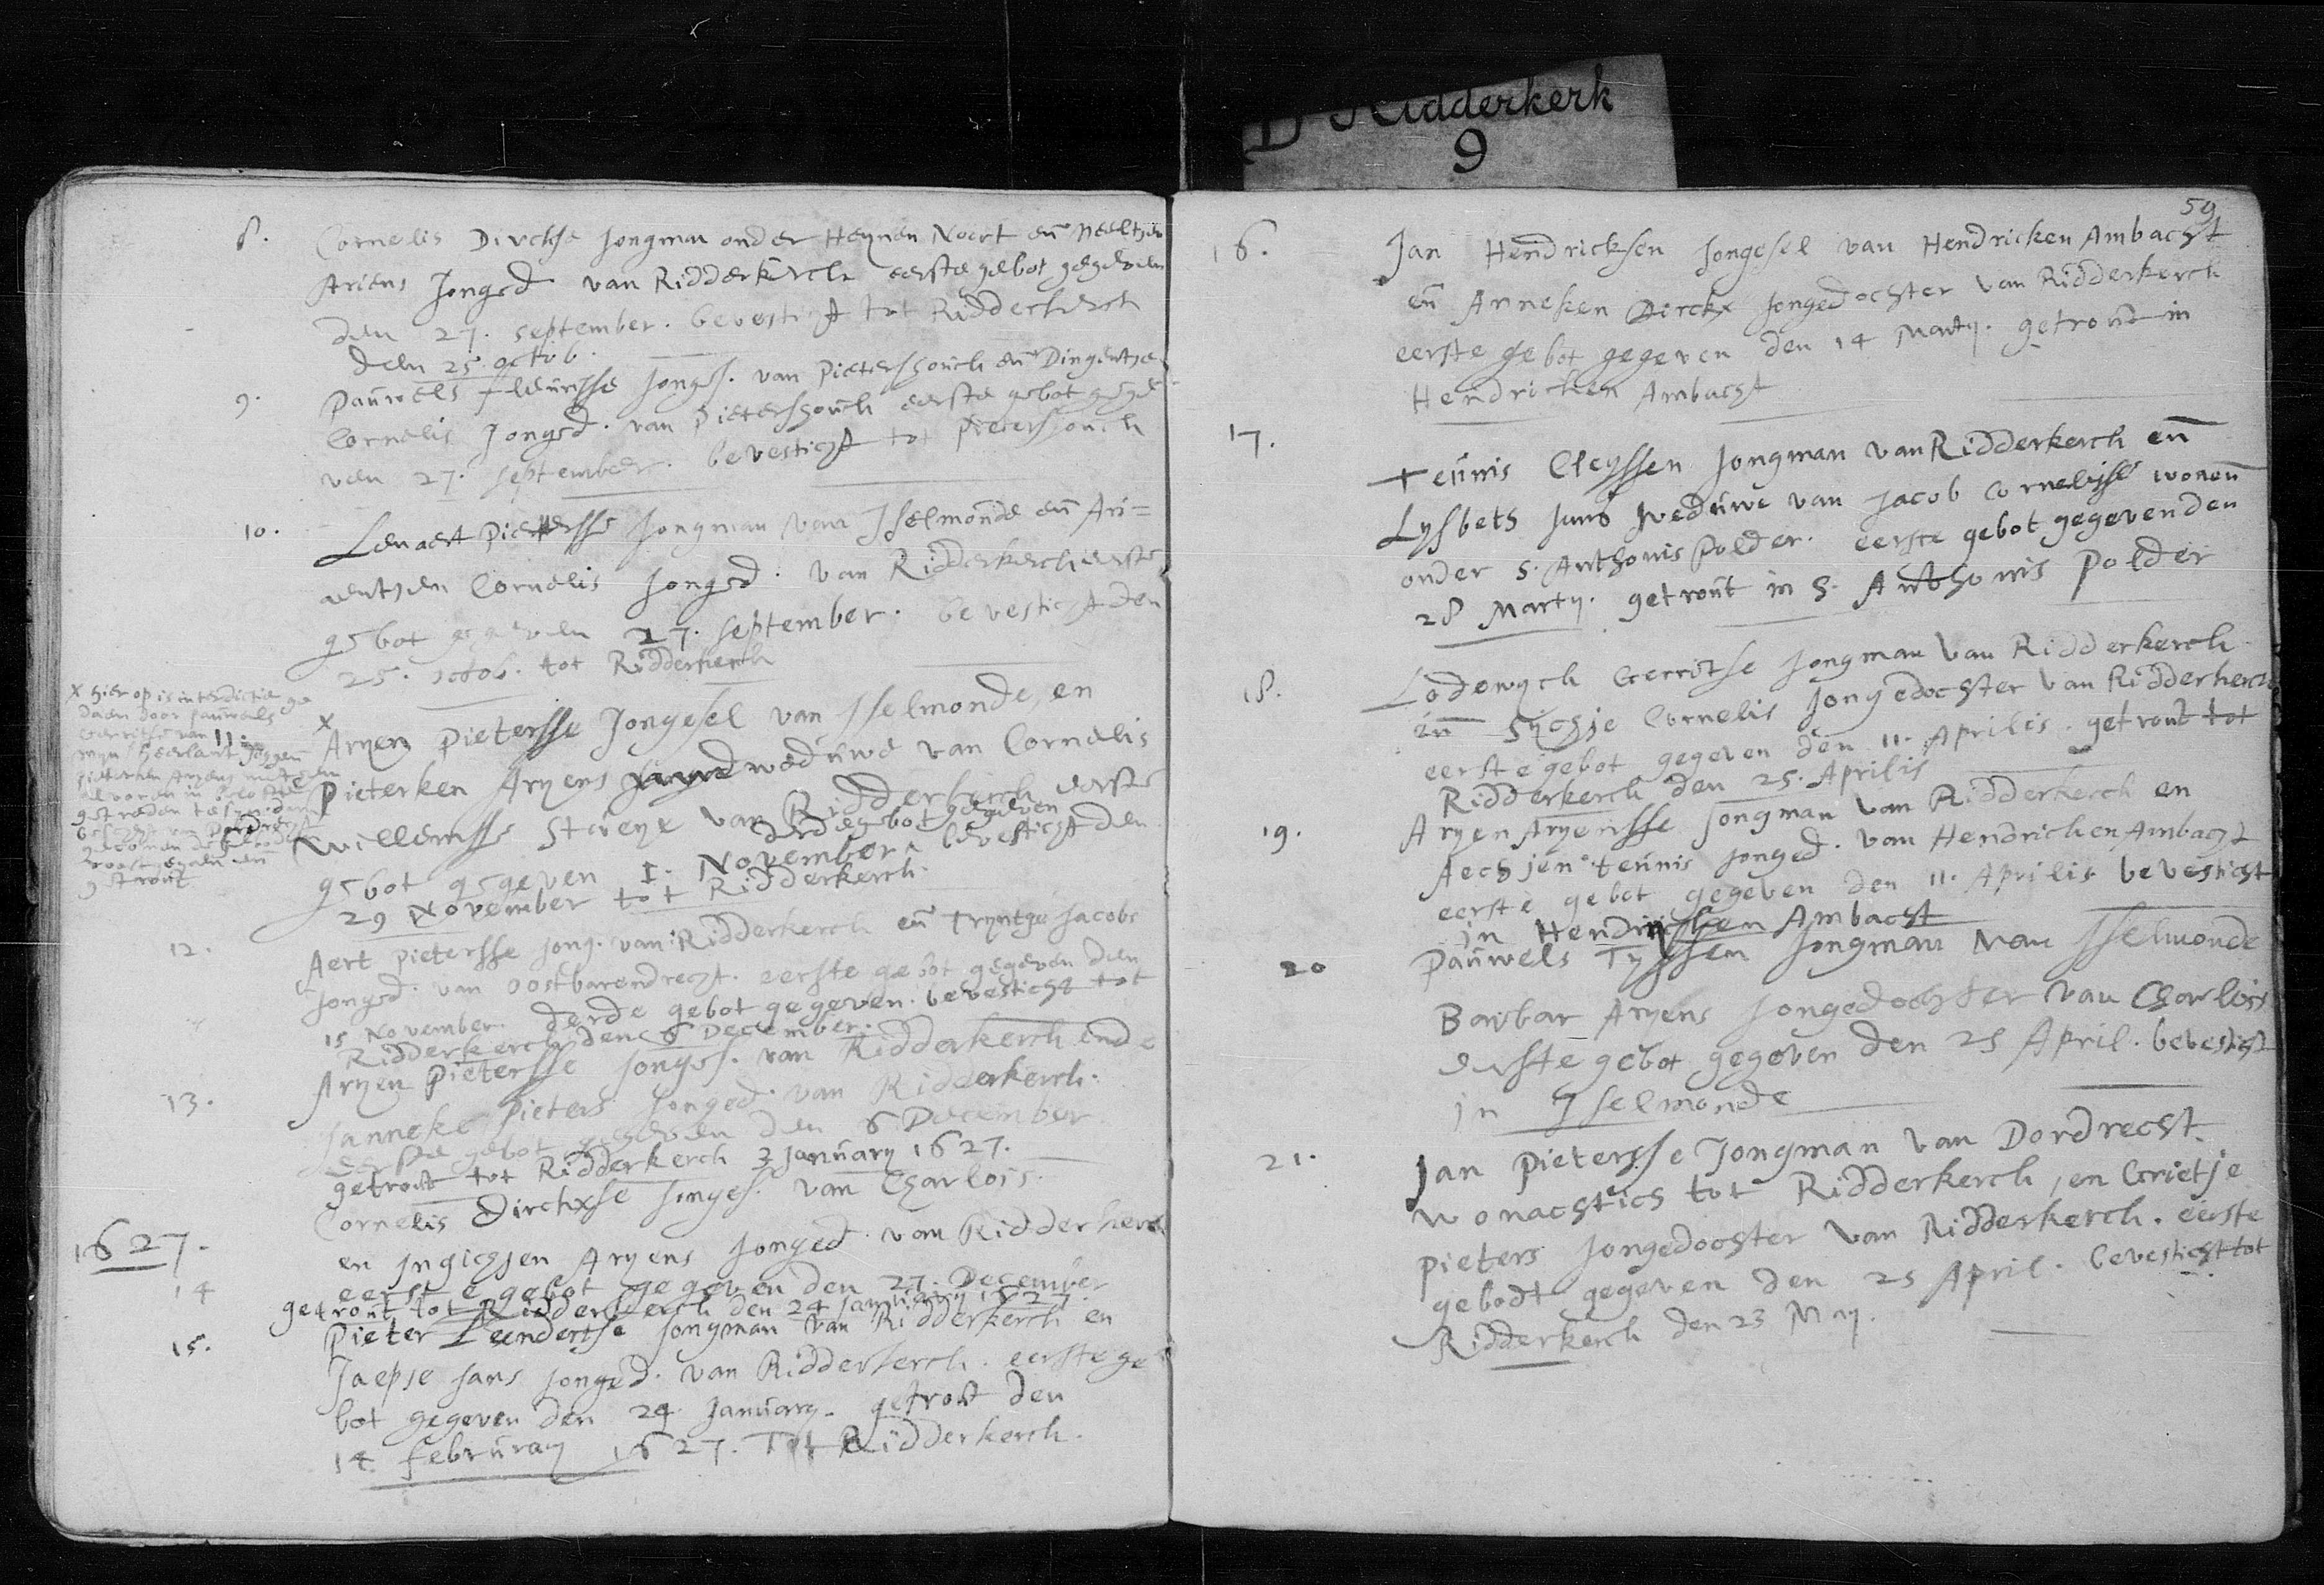 D Ridderkerk
9
8. Cornelis Dirckse Jongman onder Heynen Noort en Neeltjen
Ariens Jongd van Ridderkerch eerste gebot gegeven
den 27. september. bevesticht tot Ridderkerch
den 25. octob.
9. Pauwels fleursse Jonges. van Pietershouch en Dingentje
Cornelis Jongd. van Pietershouch eerste gebot gege
ven 27. september. bevesticht tot Pietershouch
10. Lenaert Pietersse Jongman van Jselmonde en Ari=
aentjen Cornelis Jongd. van Ridderkerch eerste
gebot gegeven 27. september. bevesticht den
25. octob. tot Ridderkerch
x hier op is interdictie ge
daen door pauwels
Gerritse van
mijnsheerlant
Pieterken Aryens
getroût
11. x Aryen Pietersse Jongesel van Jselmonde, en
Pieterken Aryens weduwe van Cornelis
Willemsse van Ridderkerch eerste
derde gebot gegeven
gebot gegeven 1. November ^ bevesticht den
29 November tot Ridderkerch.
12. Aert Pietersse Jong. van Ridderkerch en Tryntge Jacobs
Jongd. van Oostbarendrecht. eerste gebot gegeven den
15 November. derde gebot gegeven. bevesticht tot
Ridderkerch den 6 December.
13. Aryen Pietersse Jonges. van Ridderkerch ende
Janneke Pieters Jonged. van Ridderkerch.
eerste gebot gegeven den 6 December
getrout tot Ridderkerch 3 January 1627.
1627.
14 Cornelis Dirckxse Jonges. van Charlois.
en Ingichjen Aryens Jonged. van Ridderkerch
eerste gebot gegeven den 27. December
getrout tot Ridderkerch den 24 January 1627.
15. Pieter Leendertse Jongman van Ridderkerch en
Jaepje Jans Jonged. van Ridderkerch. eerste ge
bot gegeven den 24 January. getrout den
14 february 1627. Tot Ridderkerch.
59
16. Jan Hendricksen Jongesel van Hendricken Ambacht
en Anneken Dirckx Jongedochter van Ridderkerch
eerste gebot gegeven den 14 Marty. getrout in
Hendricken Ambacht
17. Teunis Cleyssen Jongman van Ridderkerch en
Lysbeth Jans Weduwe van Jacob Cornelisse wonen
onder S. Anthonis Polder. eerste gebot gegeven den
28 Marty. getrout in S. Anthonis Polder
18. Lodewych Gerritse Jongman van Ridderkerch
en Sychje Cornelis Jongedochter van Ridderkerch
eerste gebot gegeven den 11. Aprilis. getrout tot
Ridderkerch den 25. Aprilis
19. Aryen Aryensse Jongman van Ridderkerch en
Aechjen teunis Jonged. van Hendricken Ambacht
eerste gebot gegeven den 11. Aprilis bevesticht
in Hendricken Ambacht
20 Pauwels Tyssen Jongman van Jselmonde
Barbar Aryens Jongedochter van Charlois
eerste gebot gegeven den 25 April. bevesticht
in Jselmonde
21. Jan Pietersse Jongman van Dordrecht
wonachtich tot Ridderkerch, en Grietje
Pieters Jongedochter van Ridderkerch. eerste
gebodt gegeven den 25 April. bevesticht tot
Ridderkerch den 23 May.